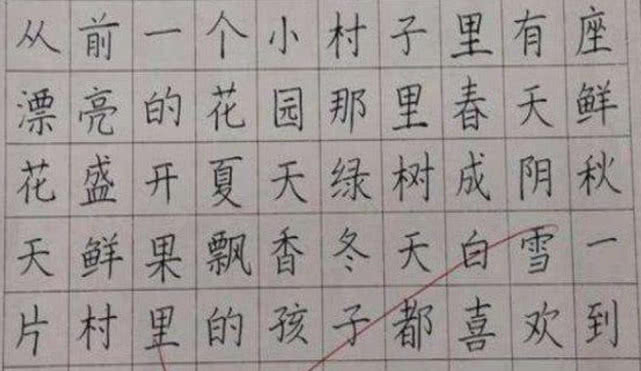 从前一个小村子里有座
漂亮的花园那里春天鲜
花盛开夏天绿树成阴秋
天鲜果飘香冬天白雪一
片村里的孩子都喜欢到